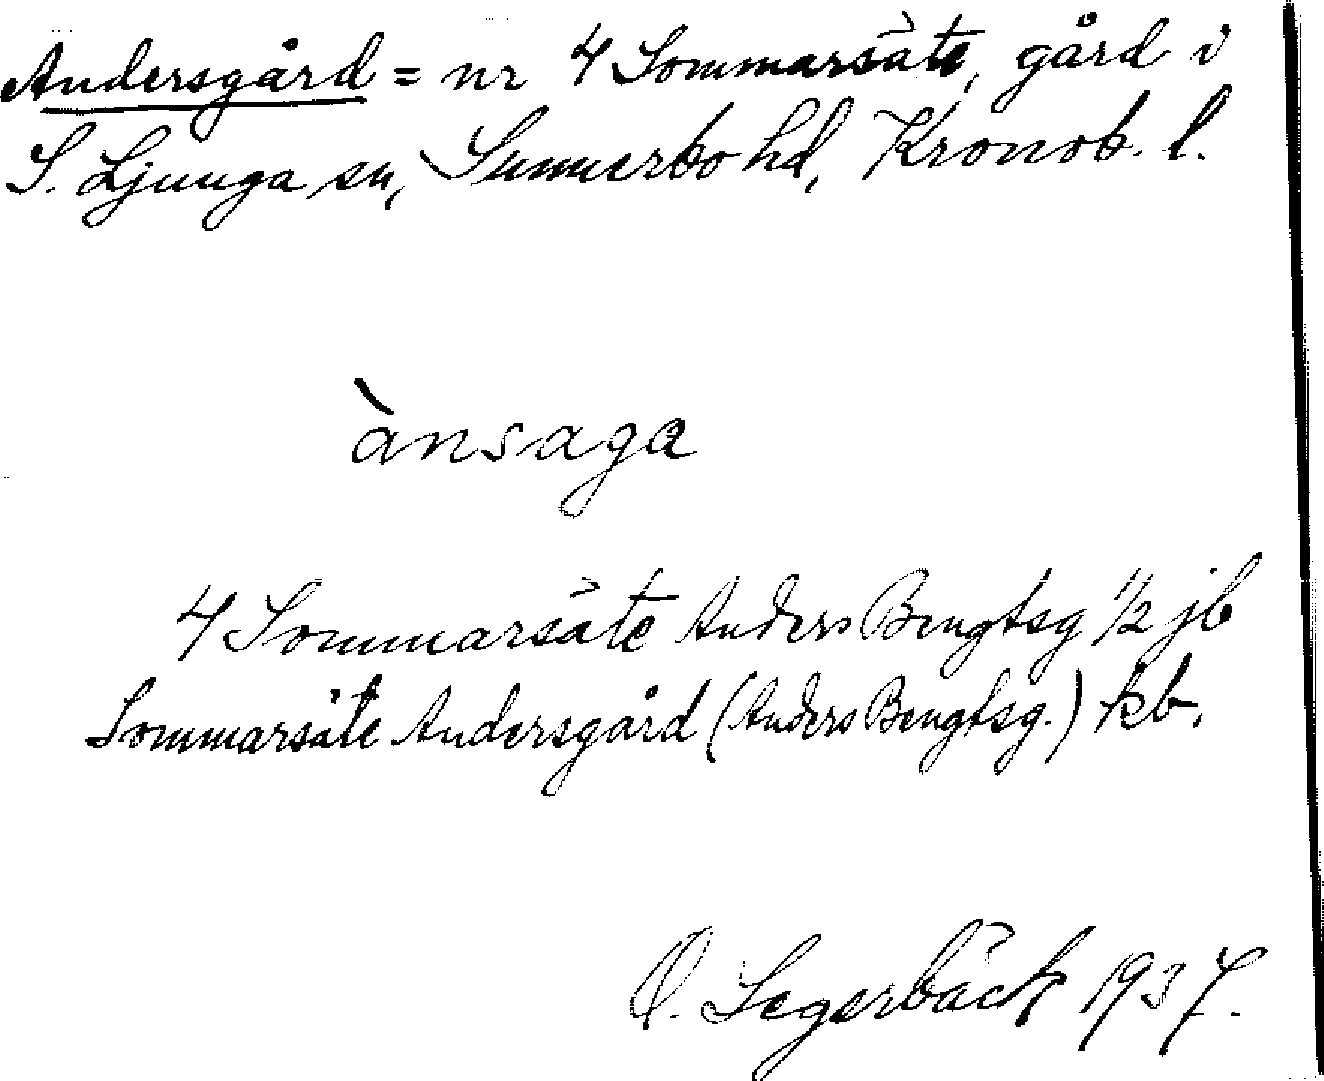 Andersgård = nr 4 Sommarsäte, gård i
S. Ljunga sn, Sunnerbo hd, Kronob. l.
ànsaga
4 Sommarsäte Anders Bengtsg 1/2 jb
Sommarsäte Andersgård (Anders Bengtsg.) kb.
O. Segerbäck 1937.